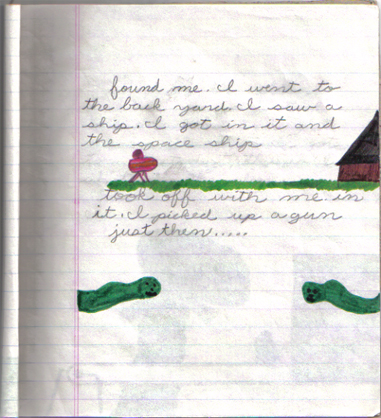 found me. I went to
the back yard. I saw a
ship. I got in it and
the space ship
took off with me in
it. I picked up a gun
just then.....